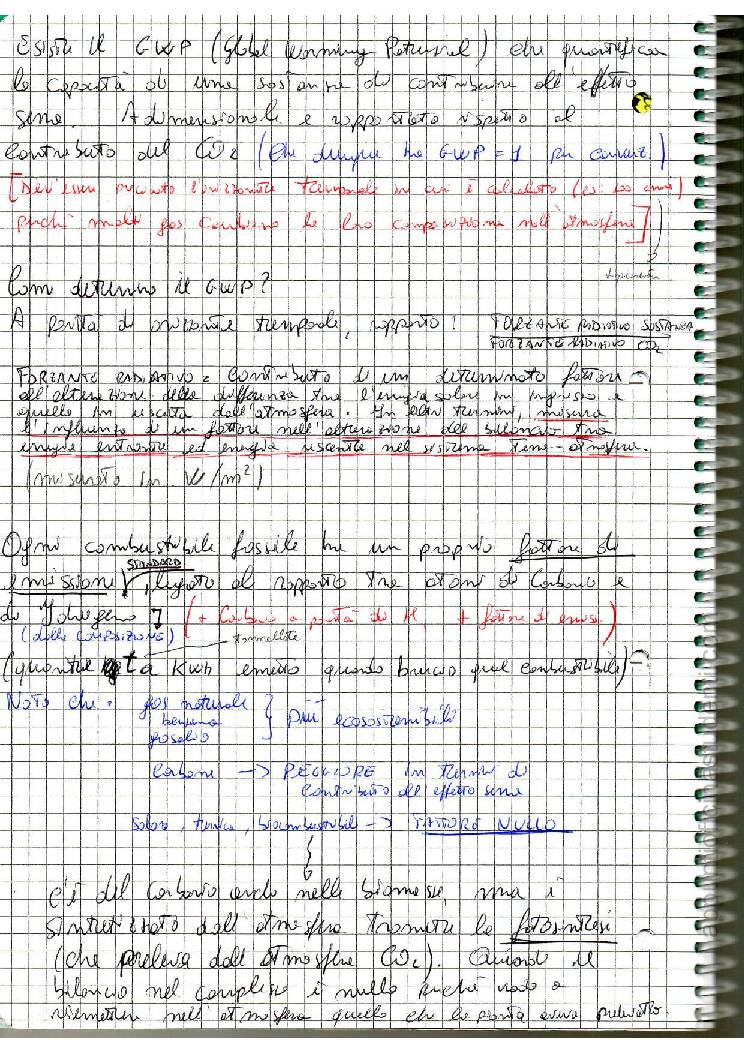 Esiste il GWP (Global Warming Potential) che quantifica
la capacità di una sostanza di contribuire all'effetto
serra. Adimensionale e rapportato rispetto al
contributo del CO2 (che dunque ha GWP = 1 per convenz.)
[Dev'essere precisato l'orizzonte temporale in cui è calcolato (es: 100 anni)
perché molti gas cambiano la loro composizione nell'atmosfera]
Come determino il GWP?
A parità di orizzonte temporale, rapporto: FORZANTE RADIATIVO SOSTANZA
FORZANTE RADIATIVO CO2
FORZANTE RADIATIVO = contributo di un determinato fattore
all'alterazione della differenza tra l'energia solare in ingresso e
quella in uscita dall'atmosfera. In altri termini, misura
l'influenza di un fattore nell'alterazione del bilancio tra
energia entrante ed energia uscente nel sistema terra-atmosfera.
(misurato in W/m²)
Ogni combustibile fossile ha un proprio fattore di
STANDARD
emissione, legato al rapporto tra atomi di Carbonio e
di Idrogeno (+ Carbonio a parità di H, + fattore di emiss.)
(dalla COMPOSIZIONE) tonnellate
(quante t a kWh emetto quando brucio quel combustibile)
Noto che: gas naturale
benzina } più ecosostenibili
gasolio
Carbone -> PEGGIORE in termini di
contributo all'effetto serra
Solare, biocombustibili -> FATTORE NULLO
c'è del Carbonio anche nelle biomasse, ma è
sintetizzato dall'atmosfera tramite la fotosintesi
(che preleva dall'atmosfera CO2). Quindi il
bilancio nel complesso è nullo perché vado a
riemettere nell'atmosfera quello che la pianta aveva prelevato.